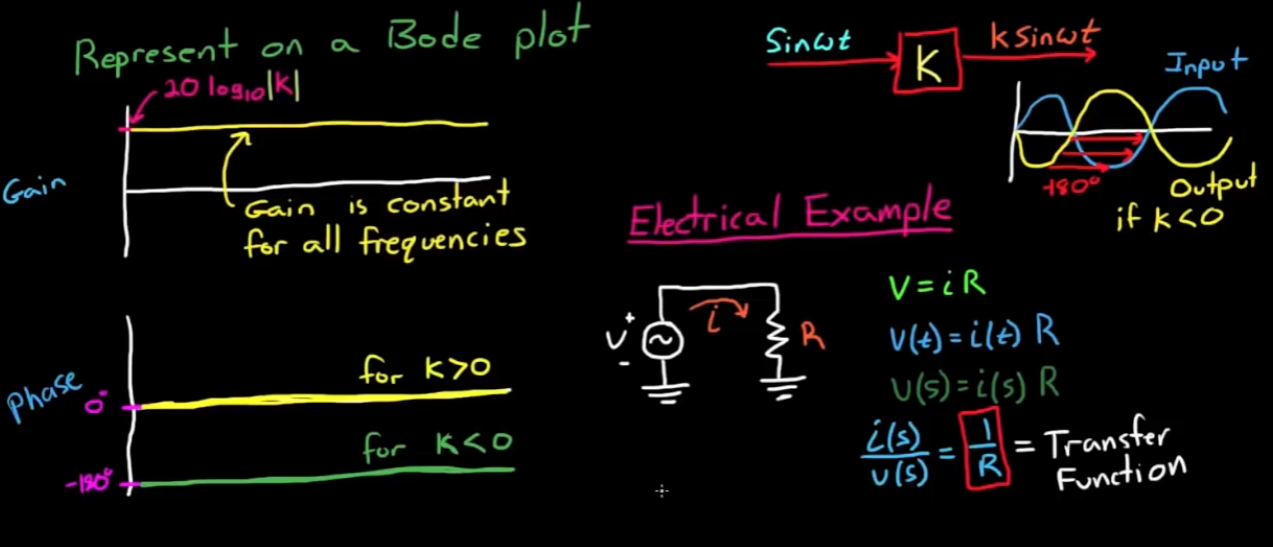 Represent on a Bode plot
20 log₁₀|K|
Gain
Gain is constant
for all frequencies
phase
0°
for K>0
for K<0
-180°
Sinωt
K
K sinωt
Input
-180°
Output
if K<0
Electrical Example
V
+
-
i
R
V = iR
V(t) = i(t) R
V(s) = i(s) R
i(s)/V(s) = 1/R = Transfer
Function